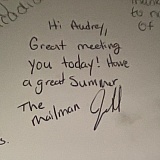 Hi Audrey,
Great meeting
you today! Have
a great Summer
The
mailman
s.